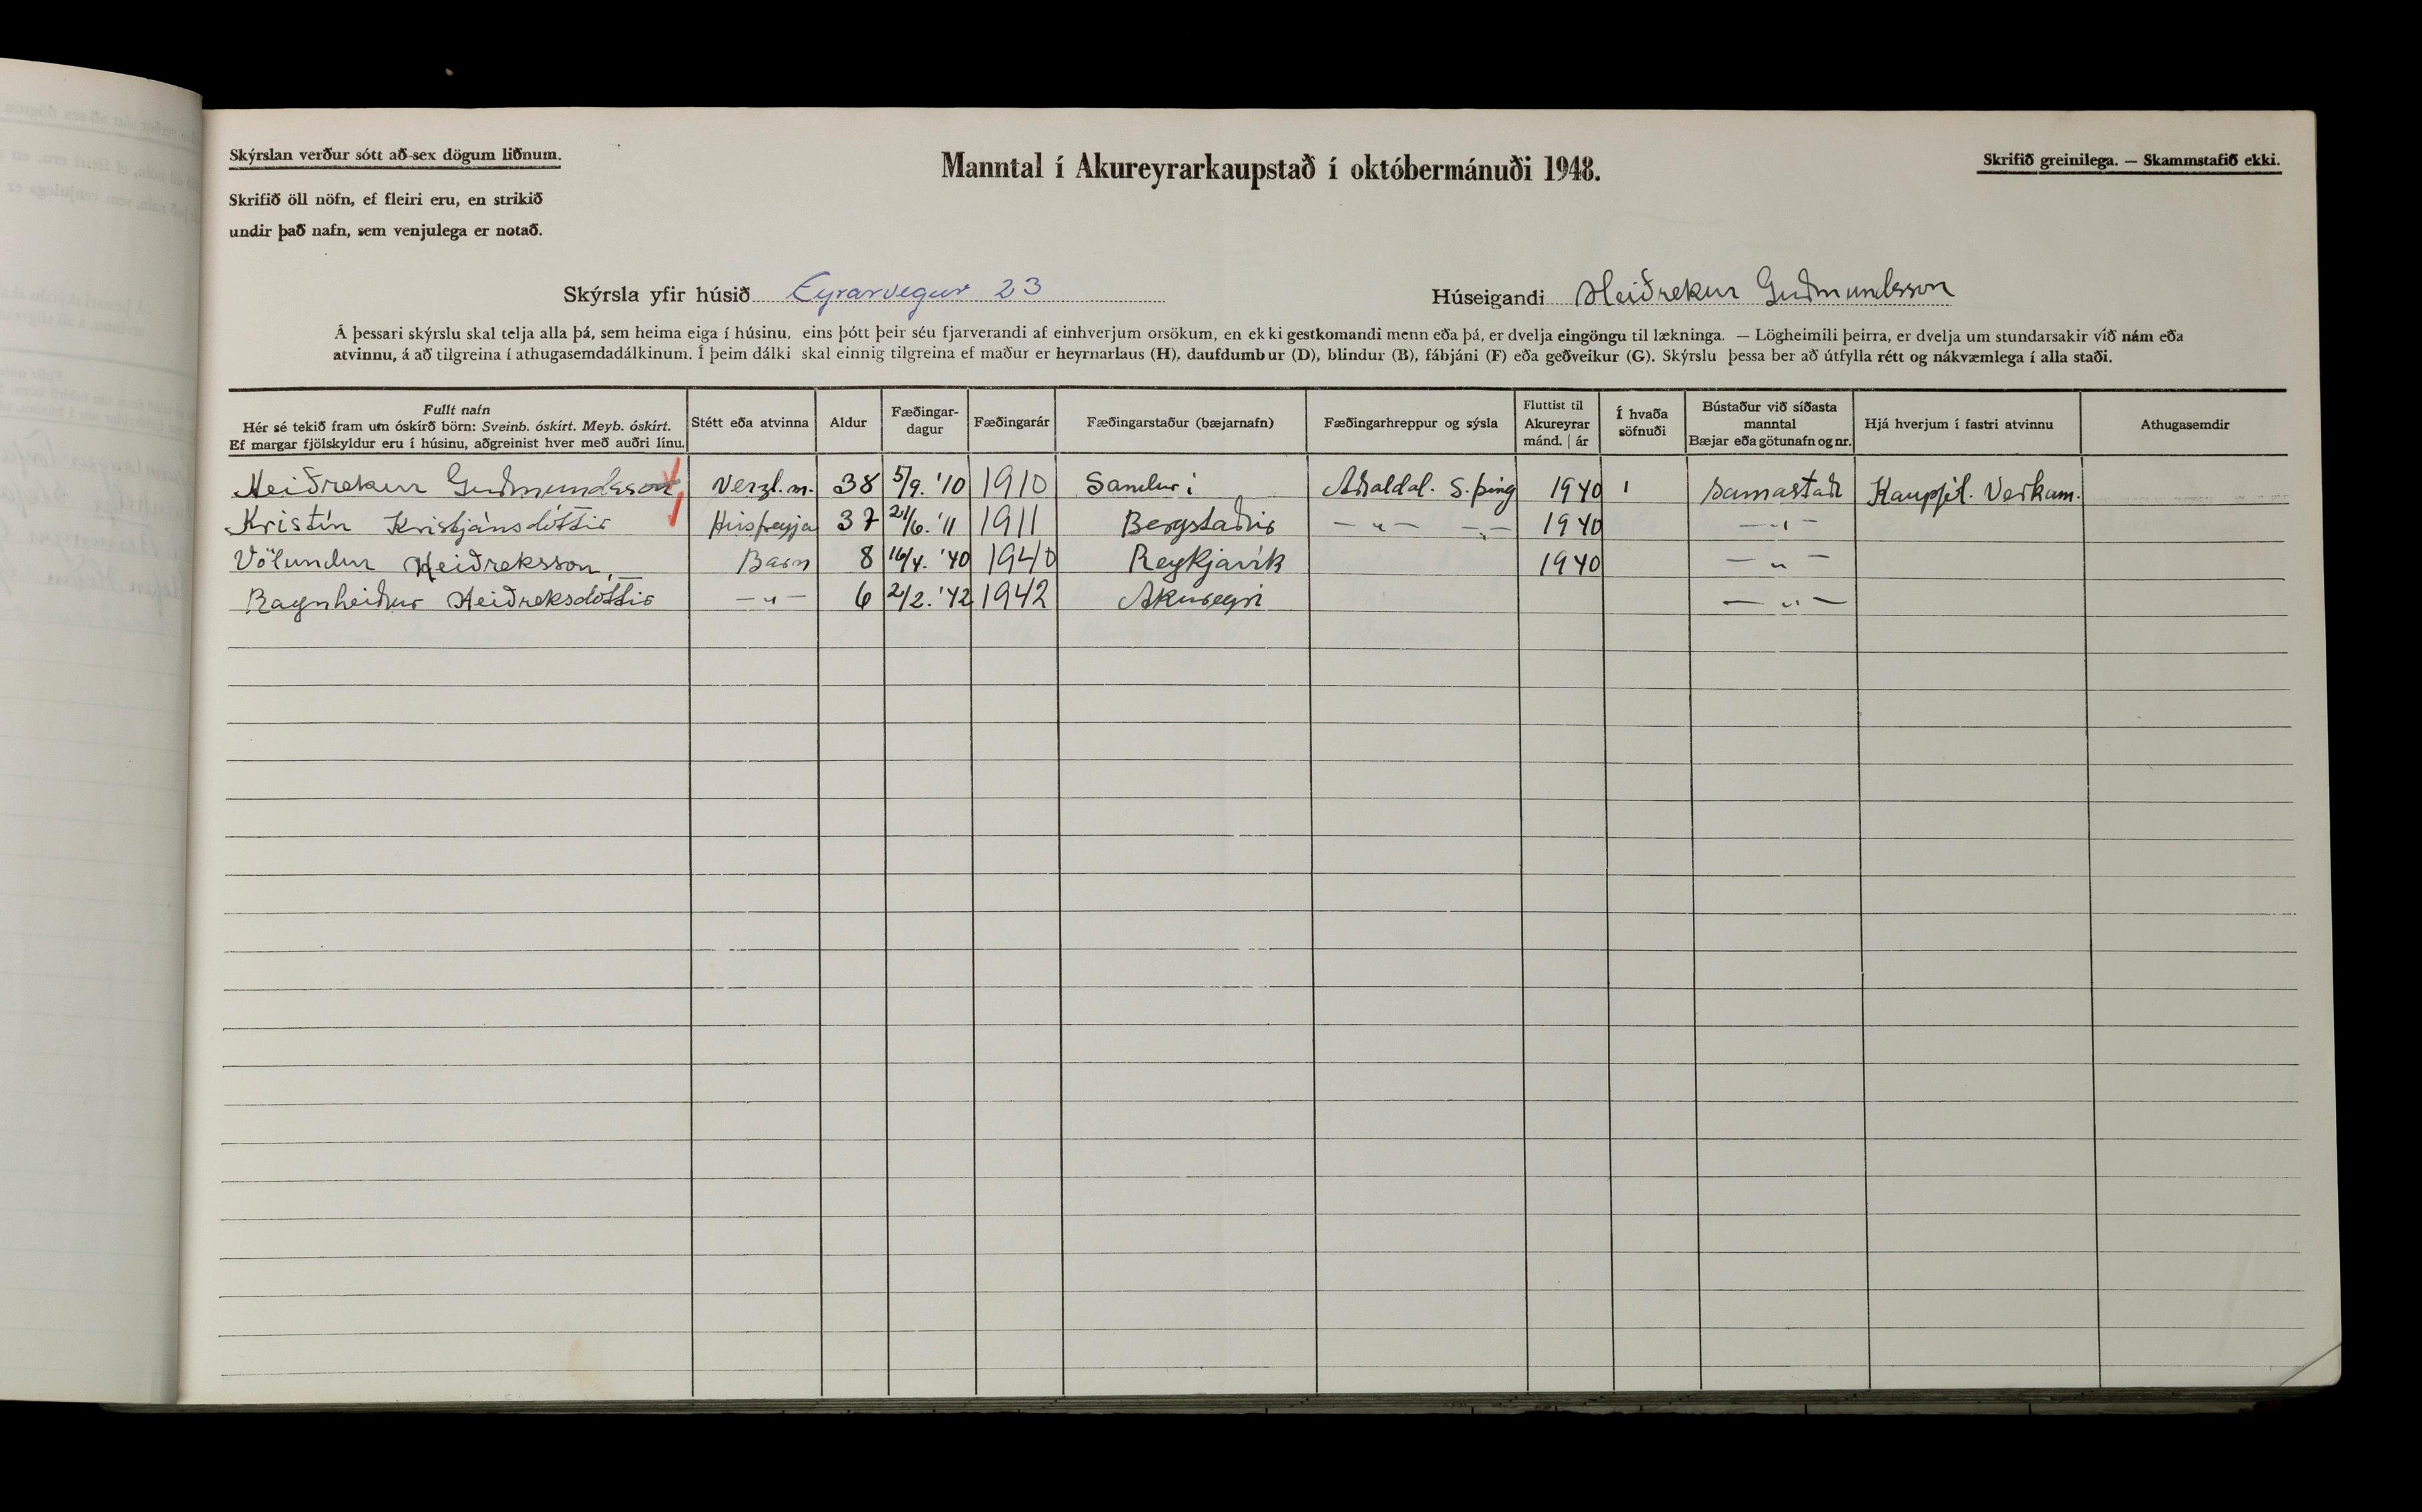 Skýrslan verður sótt að sex dögum liðnum.
Manntal í Akureyrarkaupstað í októbermánuði 1948.
Skrifið greinilega. — Skammstafið ekki.
Skrifið öll nöfn, ef fleiri eru, en strikið
undir það nafn, sem venjulega er notað.
Skýrsla yfir húsið Eyrarvegur 23 Húseigandi Heiðrekur Guðmundsson
Á þessari skýrslu skal telja alla þá, sem heima eiga í húsinu, eins þótt þeir séu fjarverandi af einhverjum orsökum, en ekki gestkomandi menn eða þá, er dvelja eingöngu til lækninga. — Lögheimili þeirra, er dvelja um stundarsakir við nám eða
atvinnu, á að tilgreina í athugasemdadálkinum. Í þeim dálki skal einnig tilgreina ef maður er heyrnarlaus (H), daufdumbur (D), blindur (B), fábjáni (F) eða geðveikur (G). Skýrslu þessa ber að útfylla rétt og nákvæmlega í alla staði.
Fullt nafn
Hér sé tekið fram um óskírð börn: Sveinb. óskírt. Meyb. óskírt.
Ef margar fjölskyldur eru í húsinu, aðgreinist hver með auðri línu.
Stétt eða atvinna
Aldur
Fæðingar-
dagur
Fæðingarár
Fæðingarstaður (bæjarnafn)
Fæðingarhreppur og sýsla
Fluttist til
Akureyrar
mánd. | ár
Í hvaða
söfnuði
Bústaður við síðasta
manntal
Bæjar eða götunafn og nr.
Hjá hverjum í fastri atvinnu
Athugasemdir
Heiðrekur Guðmundsson Verzl.m. 38 5/9. '10 1910 Sandur i Aðaldal. S. þing 1940 ' Samastað Kaupfél. Verkam.
Kristín Kristjánsdóttir Húsfreyja 37 21/6. '11 1911 Bergstaðir — " — — " — 1940 — " —
Völundur Heiðreksson Barn 8 16/4. '40 1940 Reykjavík 1940 — " —
Ragnheiður Heiðreksdóttir — " — 6 2/2. '42 1942 Akureyri — " —